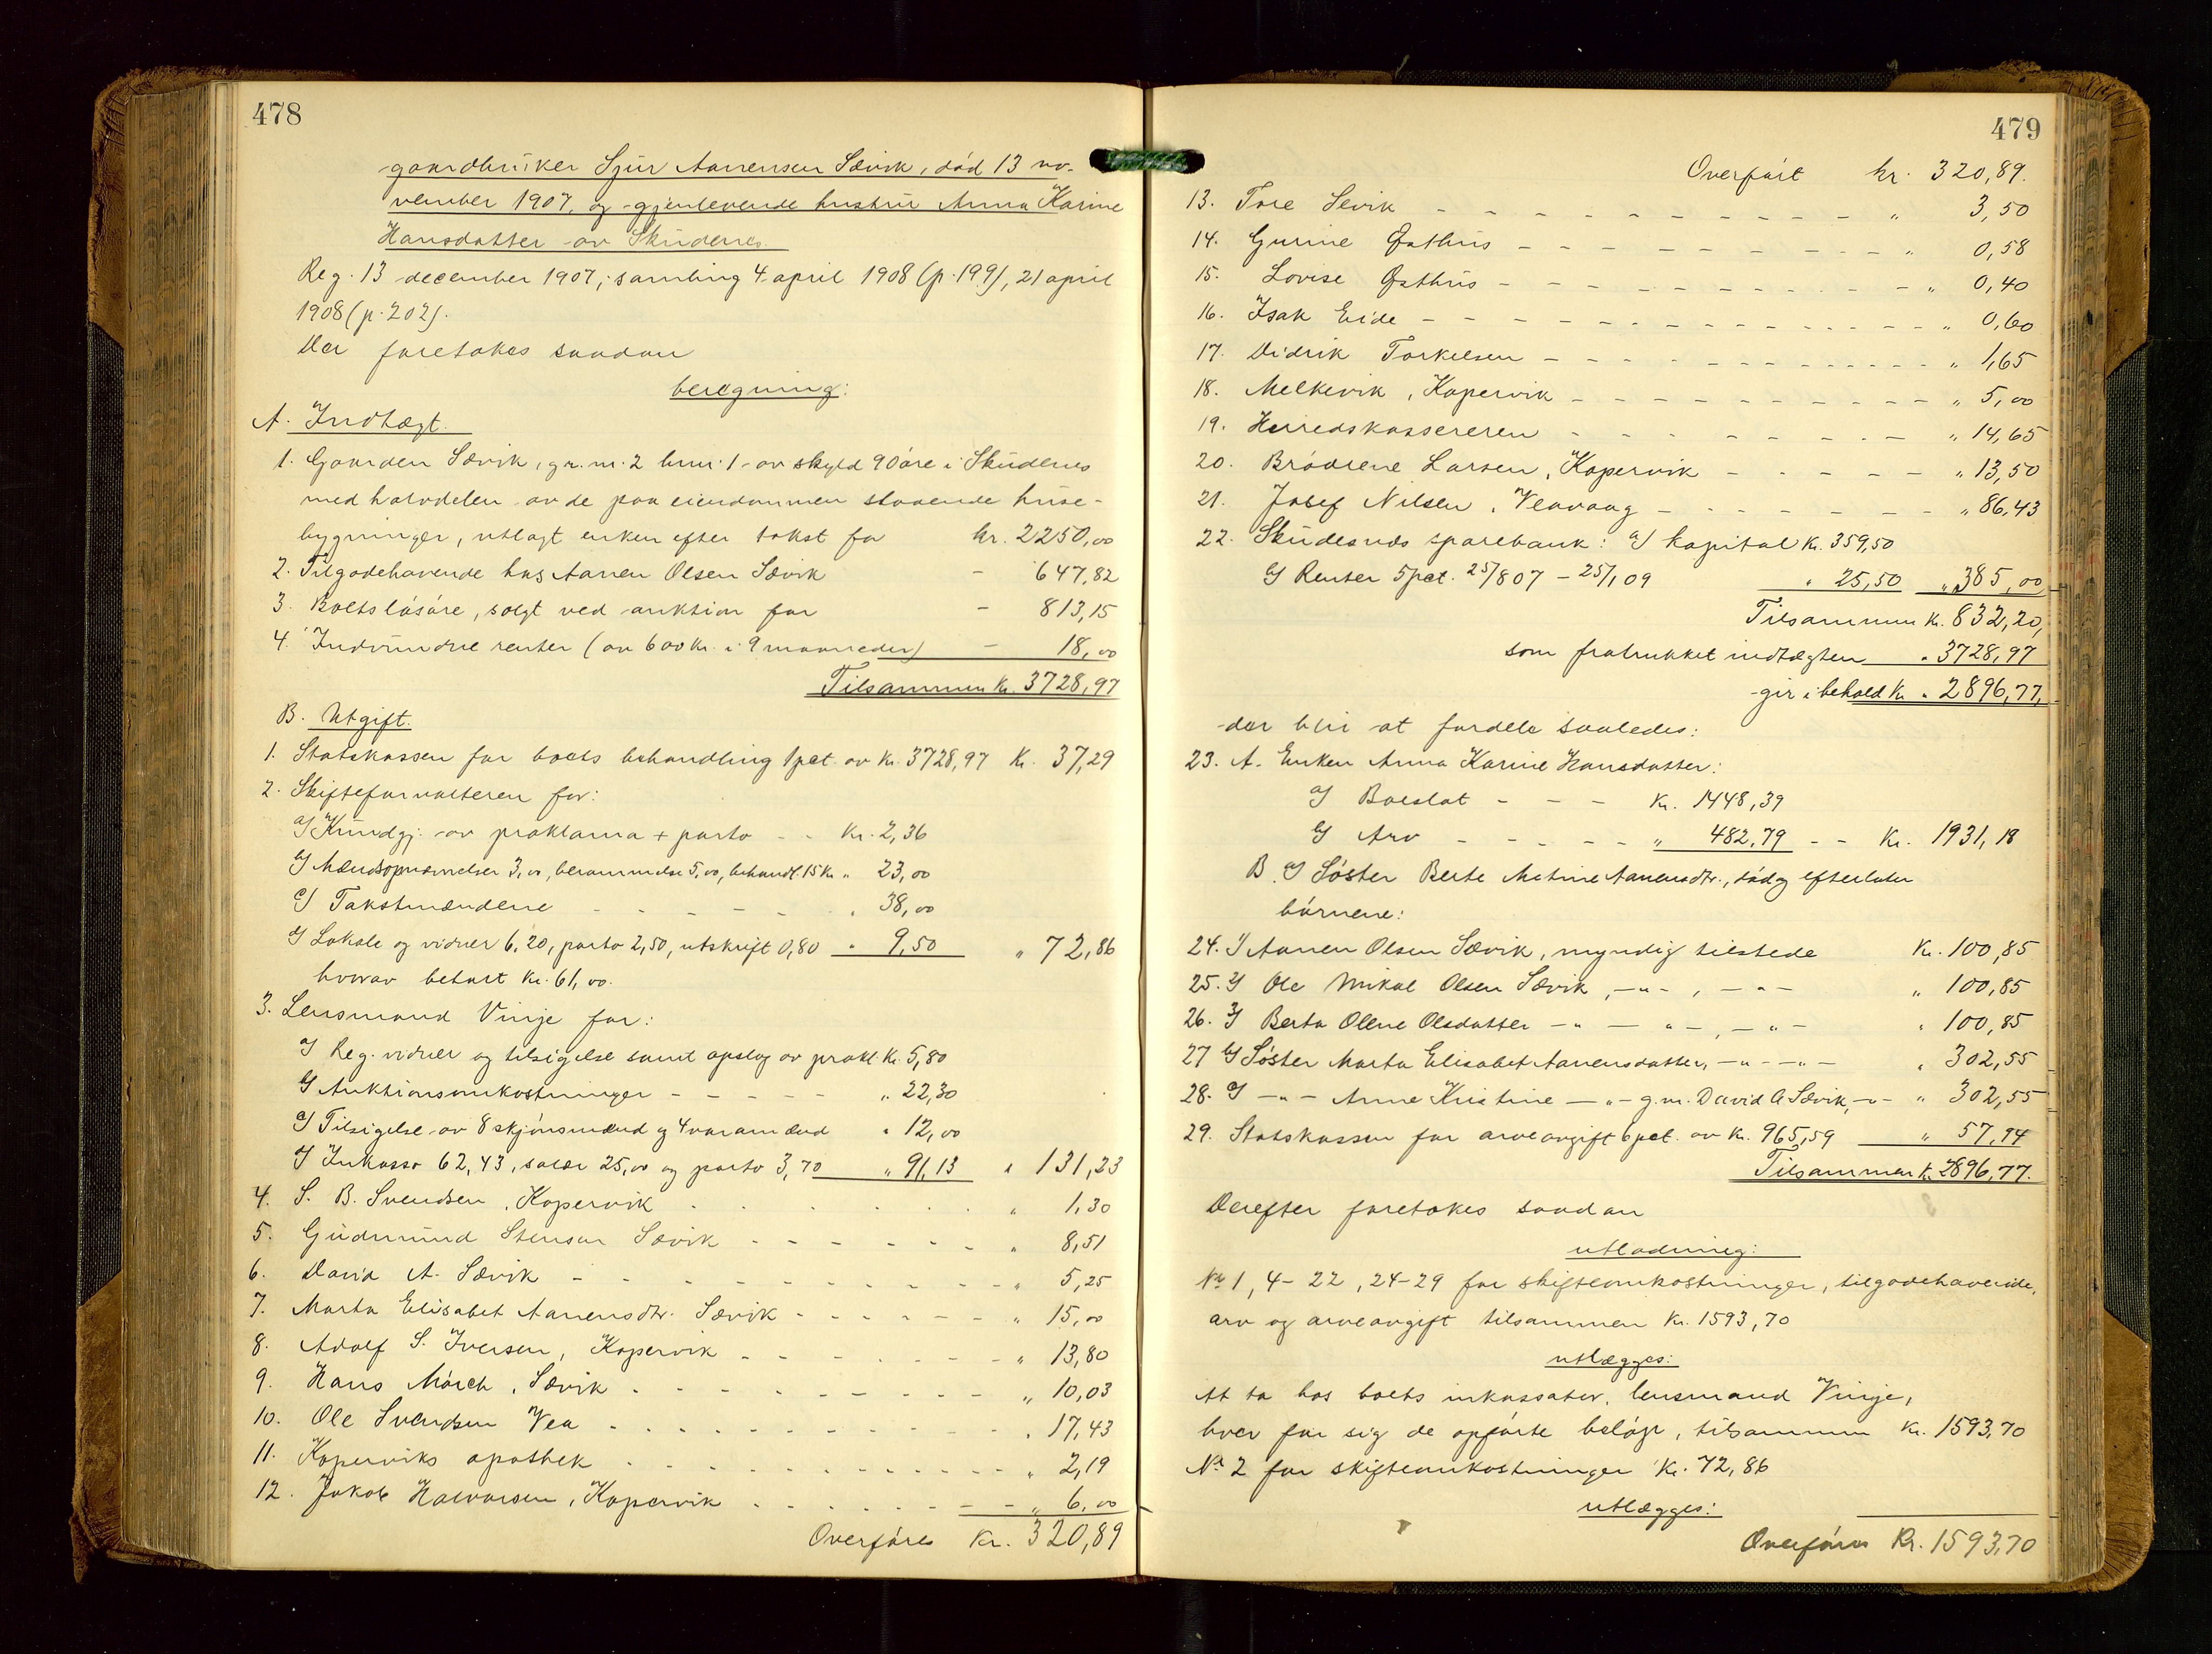 478
gaardbruker Sjur Aanensen Sævik, död 13 no-
vember 1907, og gjenlevende hustru Anna Karine
Hansdatter av Skudenes.
Reg. 13 december 1907; samling 4 april 1908 (p. 199), 21 april
1908 (p. 202).
Der foretakes saadan
beregning:
A. Indtægt.
1. Gaarden Sævik, gr. nr. 2 br.nr. 1 av skyld 90 öre i Skudenes
med halvdelen av de paa eiendommen staaende huse-
bygninger, utlagt enken efter takst for kr. 2250,00
2. Tilgodehavende hos Aanen Olsen Sævik - 647,82
3. Boets lösöre, solgt ved auktion for - 813,15
4. Indvundne renter (av 600 kr. i 9 maaneder) - 18,00
Tilsammen Kr. 3728,97
B. Utgift.
1. Statskassen for boets behandling 1 pct. av Kr. 3728,97 Kr. 37,29
2. Skifteforvalteren for:
a) Kundgj. av proklama + porto - - Kr. 2,36
b) Mændsopnævnelser 3,00, berammelse 5,00, behandl. 15 Kr. " 23,00
c) Takstmændene - - - - - " 38,00
d) Lokale og vidner 6,20, porto 2,50, utskrift 0,80 " 9,50 " 72,86
hvorav betalt Kr. 61,00.
3. Lensmand Vinje for:
a) Reg. vidner og tilsigelse samt opslag av prokl. Kr. 5,80
b) Auktionsomkostninger - - - - - " 22,30
c) Tilsigelse av 8 skjönsmænd og 4 varamænd " 12,00
d) Inkasso 62,43, salær 25,00 og porto 3,70 " 91,13 " 131,23
4. S. B. Svendsen, Kopervik " 1,30
5. Gudmund Stensen Sævik - - - - - - " 8,51
6. David A. Sævik - - - - - - - - - - " 5,25
7. Marta Elisabet Aanensdtr. Sævik - - - - - - " 15,00
8. Adolf S. Iversen, Kopervik - - - - - - - - " 13,80
9. Hans Mörch, Sævik - - - - - - - - - " 10,03
10. Ole Svendsen Vea - - - - - - - - - - " 17,43
11. Koperviks apothek - - - - - - - - - - " 2,19
12. Jakob Halvorsen, Kopervik - - - - - - - - " 6,00
Overföres Kr. 320,89
479
Overfört kr. 320,89.
13. Tore Sevik - - - - - - - - - - - - " 3,50
14. Gurine Østhus - - - - - - - - - - - " 0,58
15. Lovise Østhus - - - - - - - - - - - " 0,40
16. Isak Eide - - - - - - - - - - - - - " 0,60
17. Didrik Torkelsen - - - - - - - - - - - " 1,65
18. Melkevik, Kopervik - - - - - - - - - - " 5,00
19. Herredskassereren - - - - - - - - - " 14,65
20. Brödrene Larsen, Kopervik - - - - - " 13,50
21. Josef Nilsen, Veavaag - - - - - - - " 86,43
22. Skudesnes sparebank: a) kapital Kr. 359,50
b) Renter 5 pct. 25/8 07 - 25/1 09 " 25,50 " 385,00
Tilsammen Kr. 832,20,
som fratrukket indtægten " 3728,97
gir i behold Kr. " 2896,77,
der blir at fordele saaledes:
23. A. Enken Anna Karine Hansdatter:
a) Boeslot - - - Kr. 1448,39
b) Arv - - - - - " 482,79 - - Kr. 1931,18
B. a) Söster Berte Metine Aanensdtr., död og efterlater
börnene:
24. 1) Aanen Olsen Sævik, myndig tilstede Kr. 100,85
25. 2) Ole Mikal Olsen Sævik, -"-, -"- " 100,85
26. 3) Berta Oline Olsdatter -"- -"-, -"- " 100,85
27 b) Söster Marta Elisabet Aanensdatter, -"- -"- " 302,55
28. c) -"- Anne Kristine -"- g.m. David A Sævik, -"- " 302,55
29. Statskassen for arveavgift 6 pct. av Kr. 965,59 " 57,94
Tilsammen Kr. 2896,77.
Derefter foretakes saadan
utlodning:
No 1, 4-22, 24-29 for skifteomkostninger, tilgodehavende,
arv og arveavgift tilsammen Kr. 1593,70
utlægges:
At ta hos boets inkassator, lensmand Vinje,
hver for sig de opförte belöp, tilsammen Kr. 1593,70
No 2 for skifteomkostninger Kr. 72,86
utlægges:
Overföres Kr. 1593,70